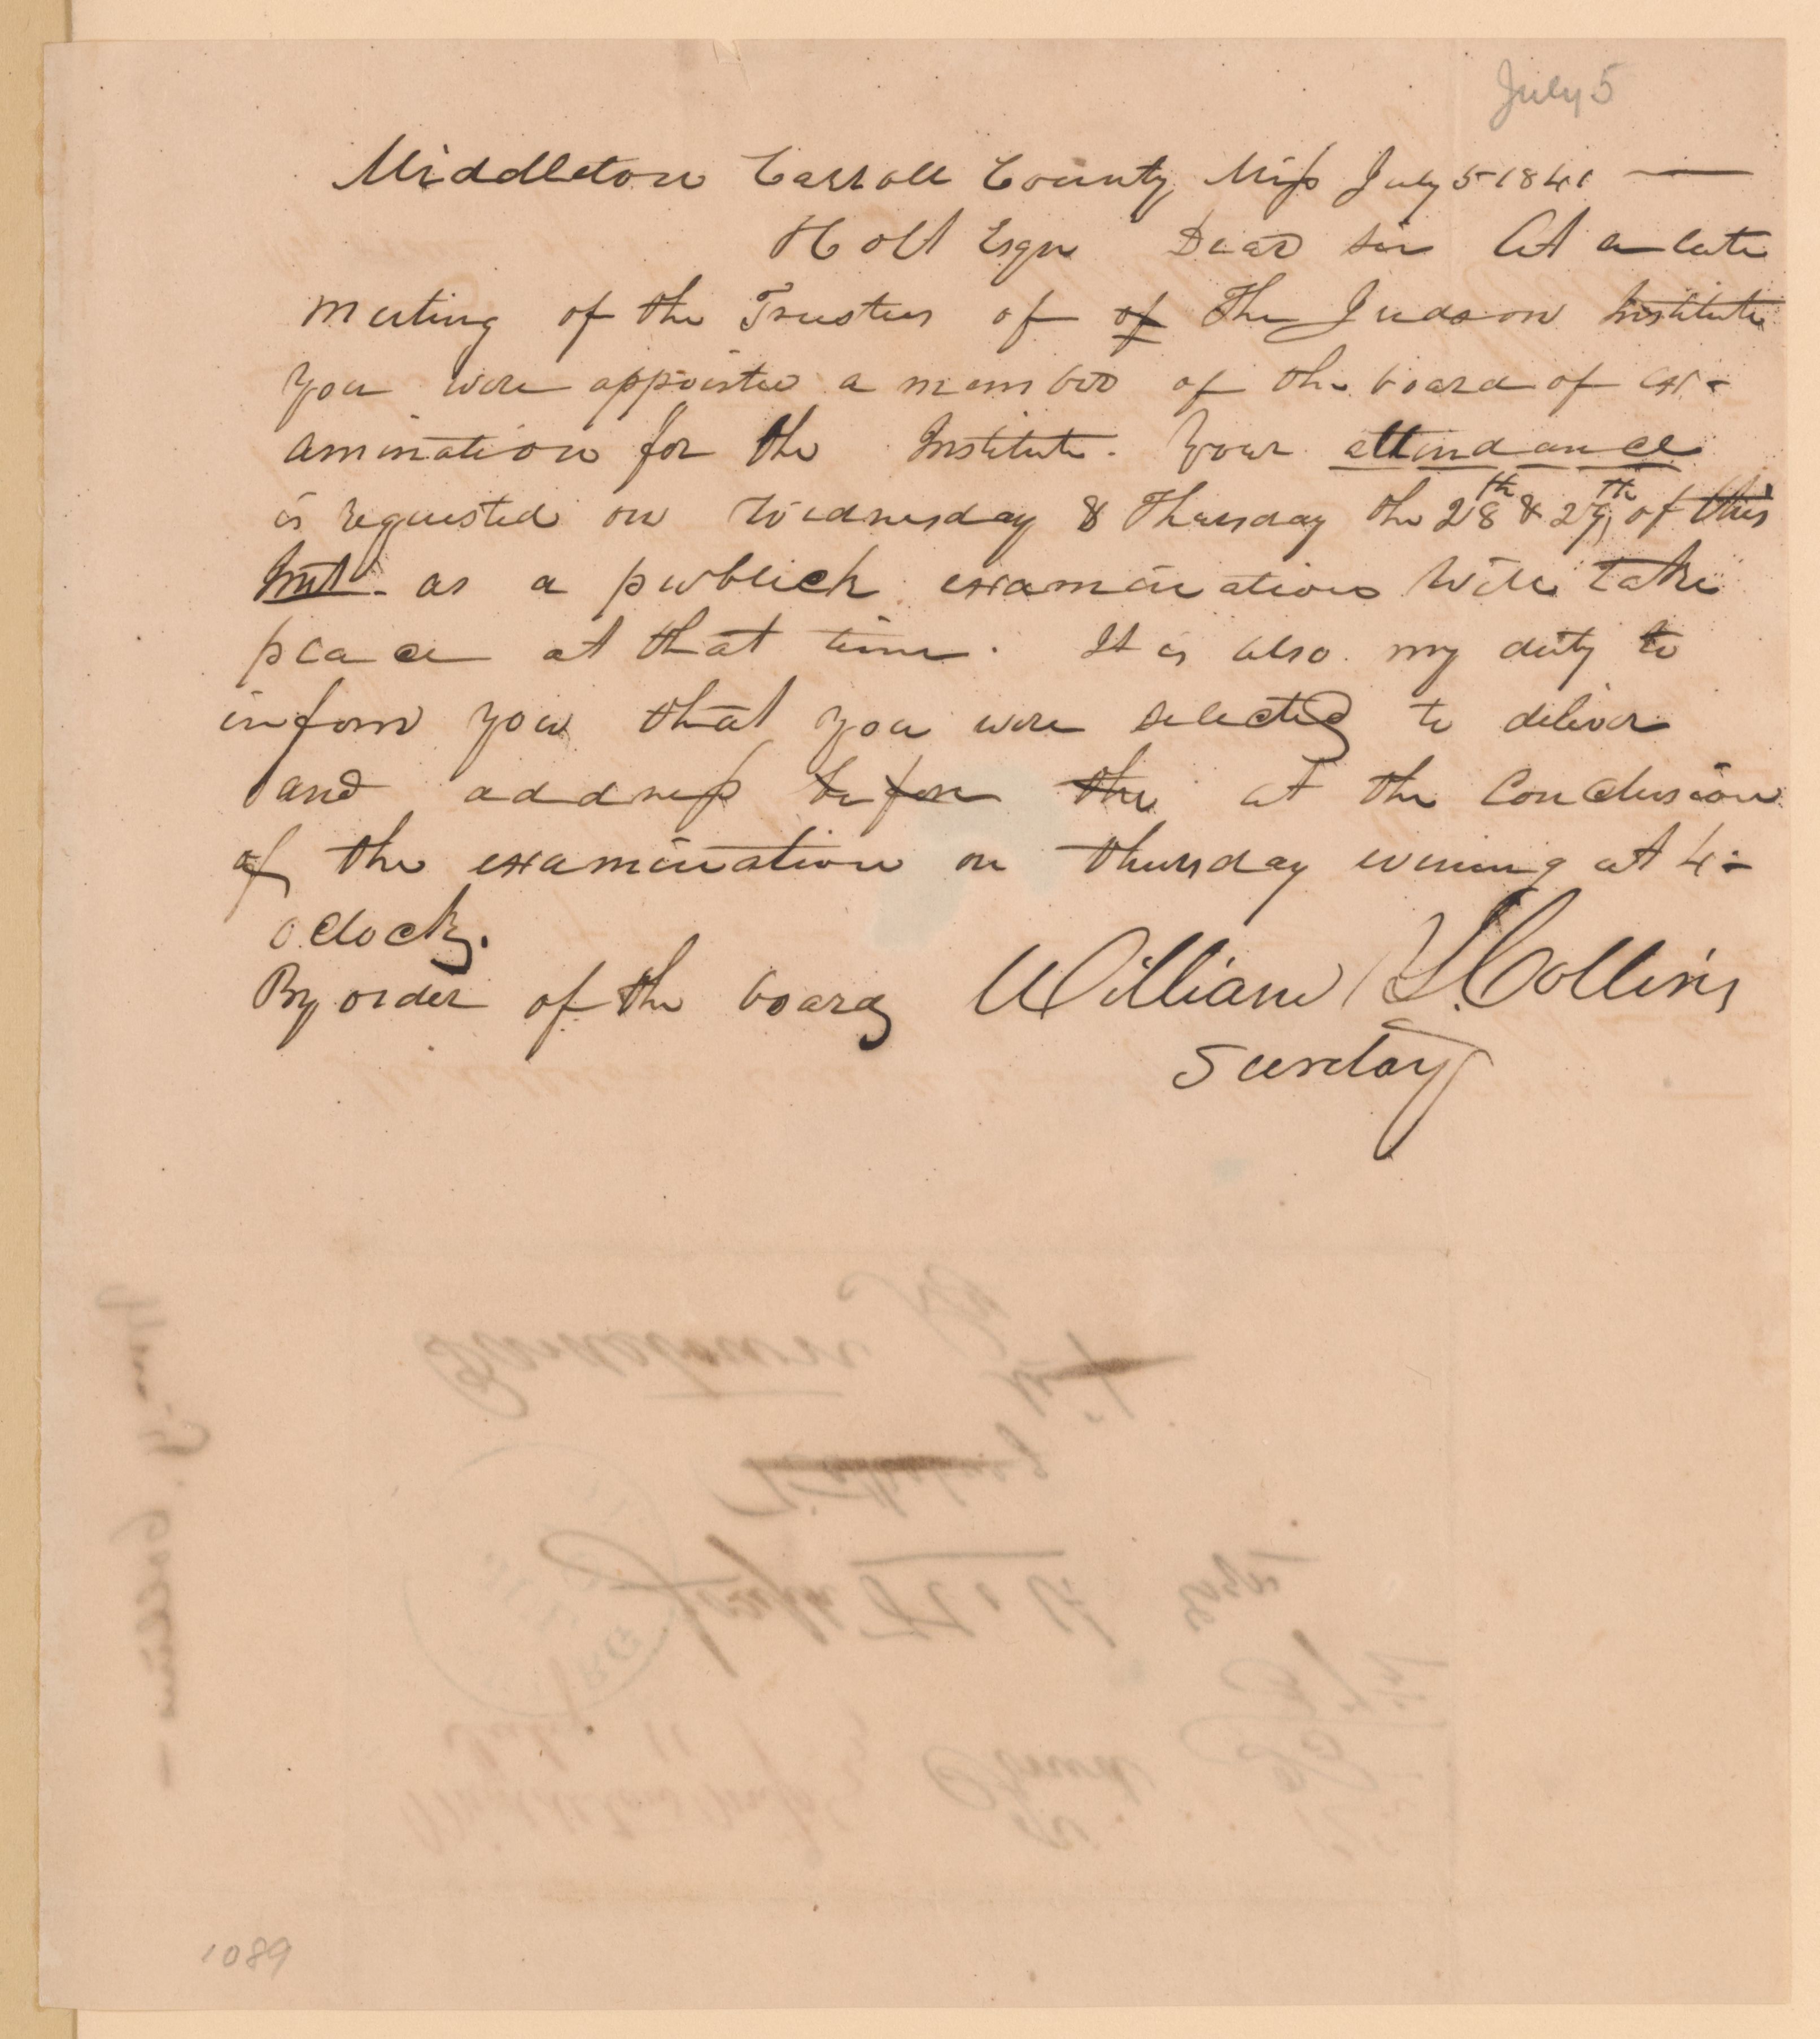 July 5
Middleton Carroll County Miss July 5 1841
Holt Esqr Dear Sir At a late
meeting of the Trustees of of The Judson Institute
you were appointed a member of the board of ex-
amination for the Institute. Your attendance
is requested on Wednesday & Thursday the 28th & 29th of this
Inst. as a publick examination will take
place at that time. It is also my duty to
inform you that you were selected to deliver
and address before the at the Conclusion
of the examination on thursday evening at 4-
oclock.
By order of the board William Collins
Secretary
Bardstown Ky
Vicksburg
Joseph Holt Esqr
1089